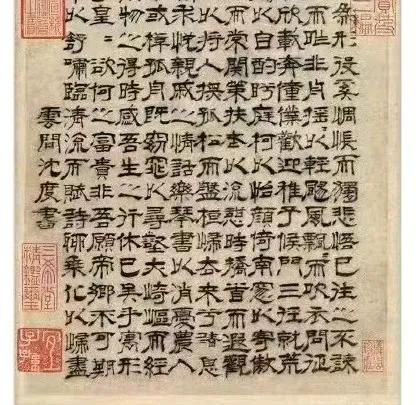 為形役奚惆悵而獨悲悟已往之不諫
而昨非舟搖〻以輕颺風飄〻而吹衣問征
欣載奔僮僕歡迎稚子候門三徑就荒
以自酌眄庭柯以怡顏倚南窻以寄傲
而常關策扶老以流憩時矯首而遐觀
以將入撫孤松而盤桓歸去來兮請息
求悅親戚之情話樂琴書以消憂農人
或棹孤舟既窈窕以尋壑亦崎嶇而經
物之得時感吾生之行休已矣乎寓形
皇欲何之富貴非吾願帝鄉不可期
以舒嘯臨清流而賦詩聊乘化以歸盡
雲間沈度書
三希堂精鑑璽
宜子孫